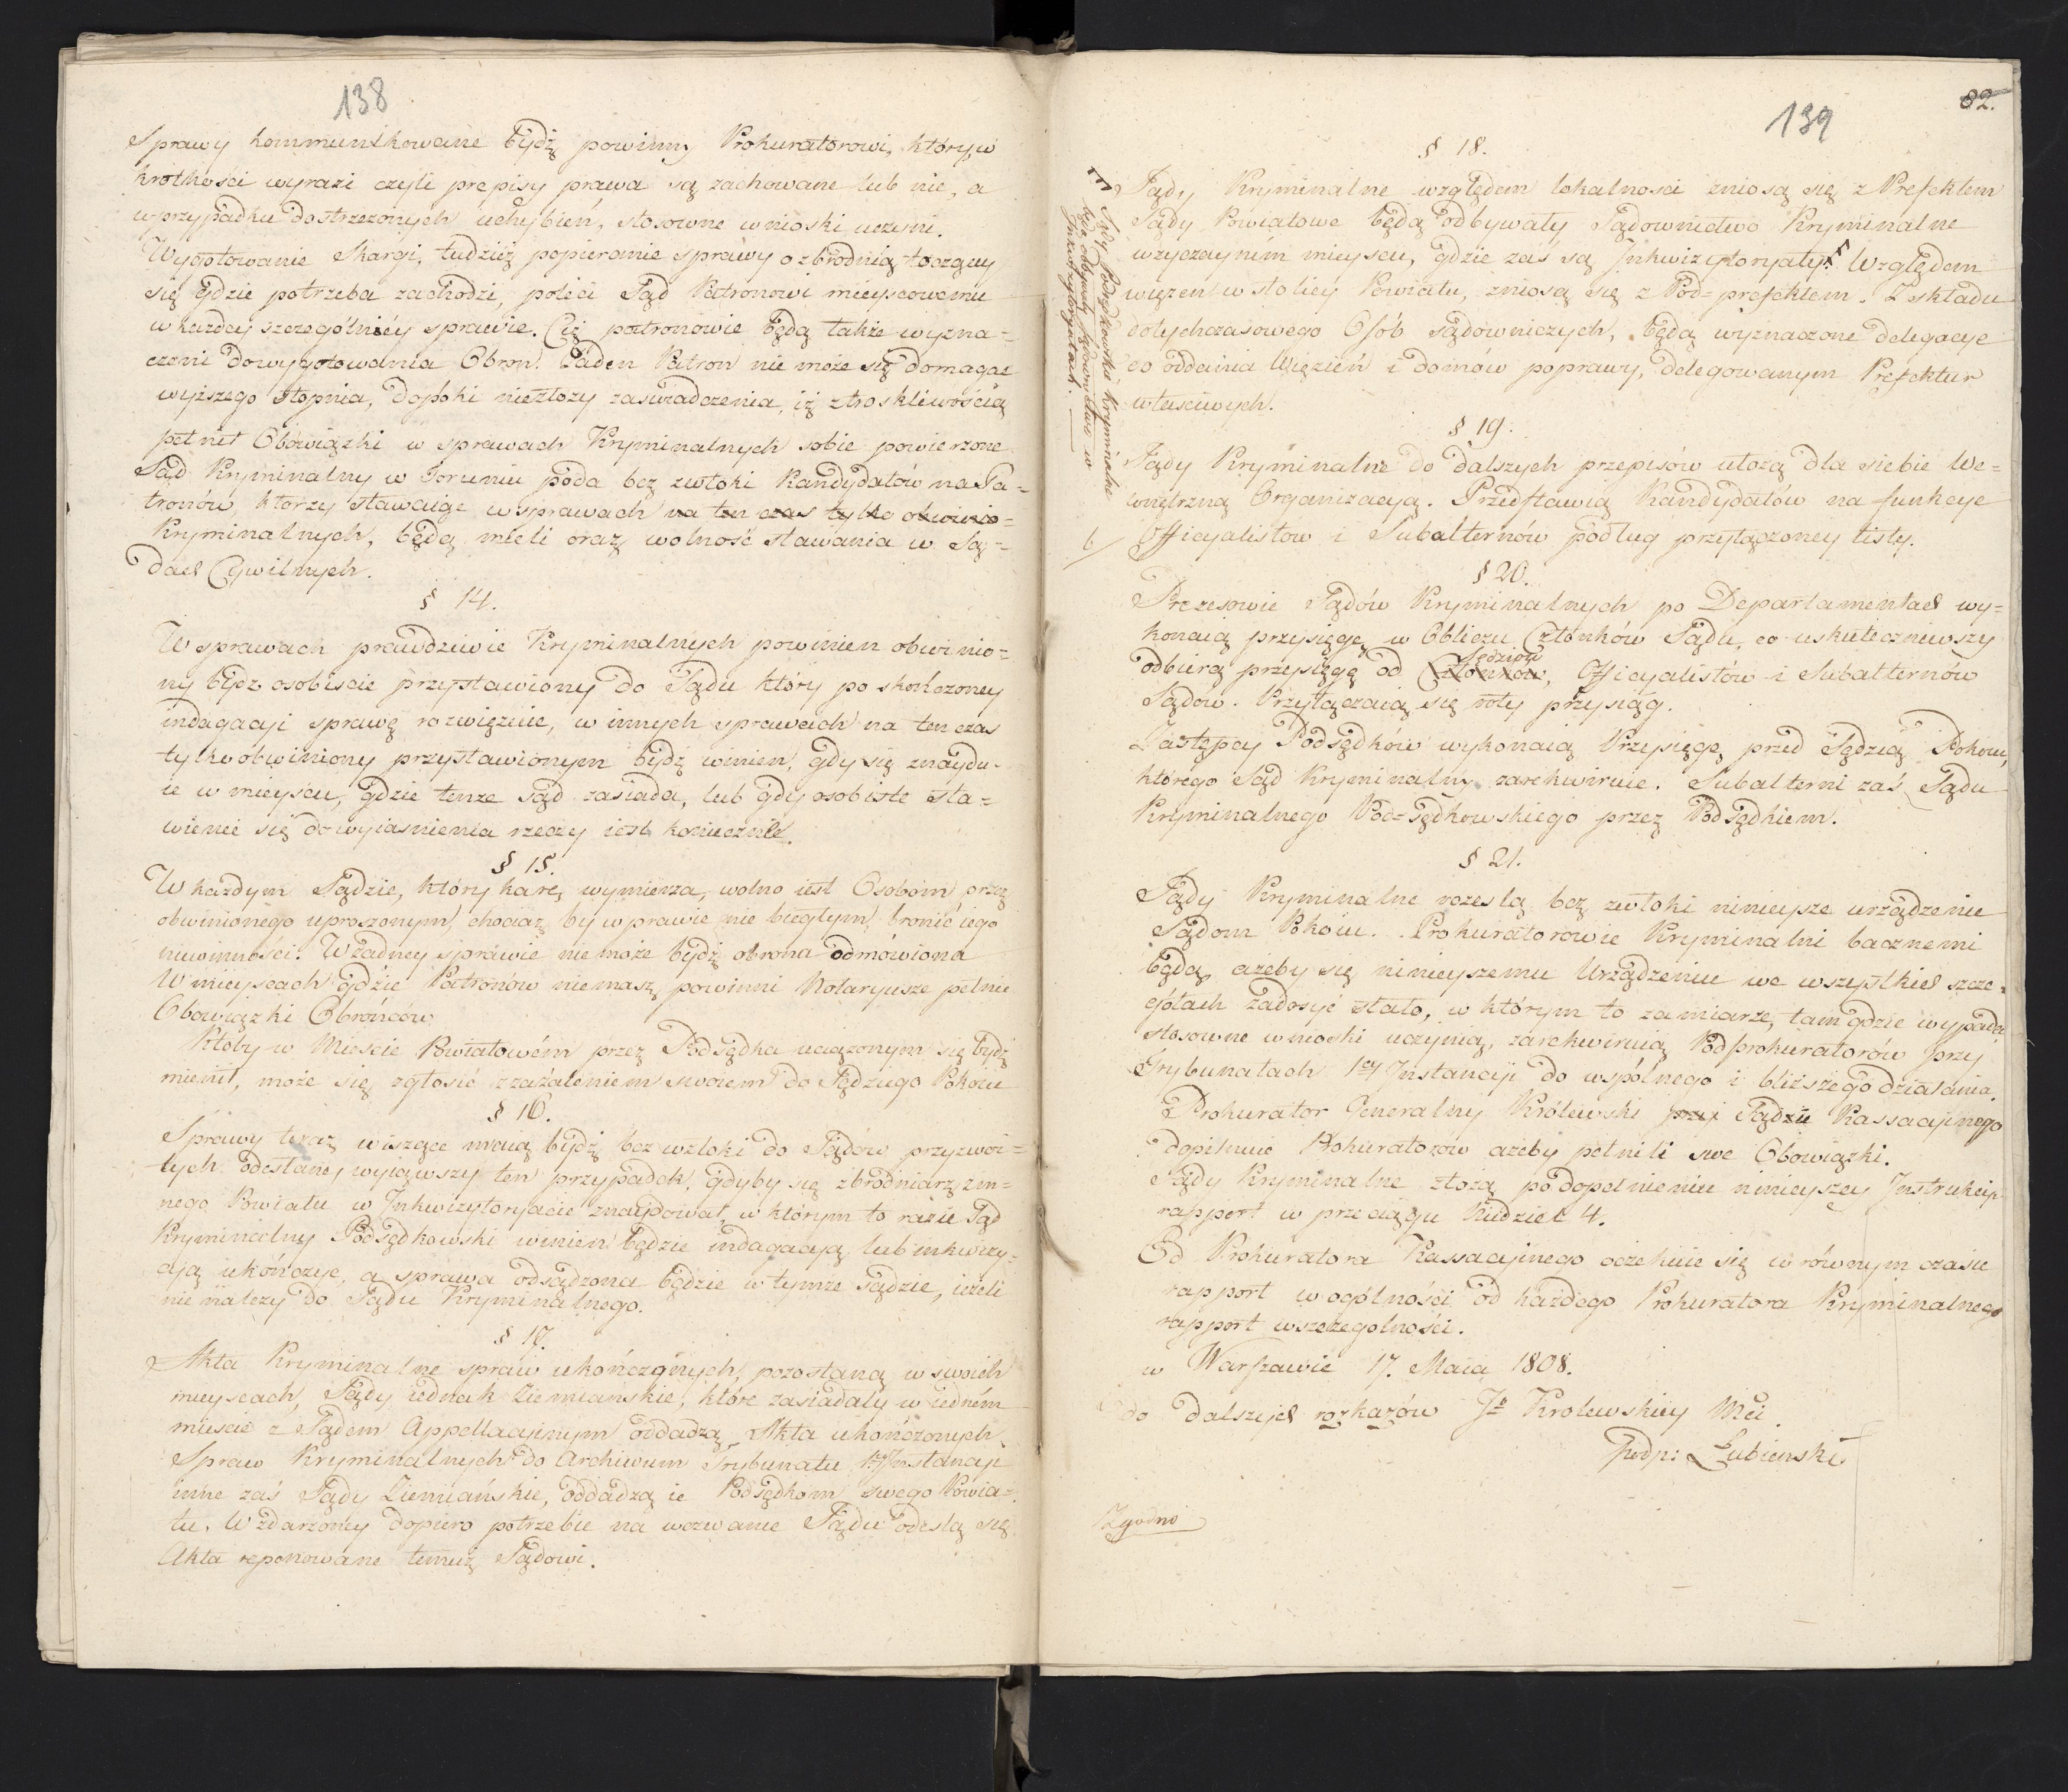 138
Sprawy kommunikowane bydź powinny Prokuratorowi, który w
krótkości wyrazi czyli prepisy prawa są zachowane lub nie, a
w przypadku dostrzeżonych uchybień, stosowne wnioski uczyni.
Wygotowanie Skargi, tudzież popieranie sprawy o zbrodnią toczącey
się gdzie potrzeba zachodzi, poleci Sąd Patronowi mieyscowemu
w każdey szczególniéy sprawie. Ciż patronowie będą także wyzna=
czeni do wygotowania Obron. Żaden Patron nie może się domagać
wyższego stopnia, dopóki niezłoży zaświadczenia, iż z troskliwością
pełnił Obowiązki w sprawach Kryminalnych sobie powierzone
Sąd Kryminalny w Toruniu poda bez zwłoki Kandydatów na Pa=
tronów, którzy stawaiąc w sprawach na ten czas tylko obwinio=
Kryminalnych, będą mieli oraz wolność stawania w Są=
dach Cywilnych.
§ 14.
W sprawach prawdziwie Kryminalnych powinien obwinio=
ny bydz osobiście przystawiony do Sądu który po skończoney
indagacyi sprawę rozwiąże, w innych sprawach na ten czas
tylko obwiniony przystawionym bydź winien, gdy się znaydu=
ie w mieyscu, gdzie tenże sąd zasiada, lub gdy osobiste sta=
wienie się do wyiasnienia rzeczy iest konieczne.
§ 15.
W każdym Sądzie, który karę wymierza, wolno iest Osobom przez
obwinionego uproszonym, chociaż by w prawie nie biegłym, bronić iego
niewinności. W żadney sprawie nie może bydź obrona odmówiona
W mieyscach gdzie Patronów niemasz, powinni Notaryusze pełnić
Obowiązki Obrońców
Któby w Mieście Powiatowém przez Podsędka uciążonym się bydź
mienił, może się zgłosić z zażaleniem swoiem do Sędziego Pokoiu
§ 16.
Sprawy teraz wiszące maią bydź bez zwłoki do Sądów przyzwoi=
tych odesłane, wyiąwszy ten przypadek, gdyby się zbrodniarz z in=
nego Powiatu w Inkwizytoryacie znaydował, w którym to razie Sąd
Kryminalny Podsędkowski winien będzie indagacyą lub inkwizy=
cyą ukończyc, a sprawa odsądzona będzie w tymże Sądzie, ieżeli
nie należy do Sądu Kryminalnego.
§ 17.
Akta Kryminalne spraw ukończonych, pozostaną w swoich
mieyscach, Sądy iednak Ziemianskie, które zasiadały w iedném
mieście z Sądem Appellacyinym oddadzą Akta ukończonych
Spraw Kryminalnych do Archiwum Trybunału 1ey Instancyi
inne zaś Sądy Ziemiańskie, oddadzą ie Podsędkom swego Powia=
tu. W zdarzoney dopiero potrzebie na wezwanie Sądu odeslą się
Akta reponowane temuż Sądowi.
82.
139
§ 18.
Sądy Kryminalne względem lokalnosci zniosą się z Prefektem
Sądy Powiatowe będą odbywały Sądownictwo Kryminalne
w zwyczaynym mieyscu, gdzie zaś są Inkwizytoryaty F Względem
więzień w stolicy Powiatu, zniosą się z Pod=prefektem. Z składu
dotychczasowego Osób sądowniczych, będą wyznaczone delegacye
do oddania Więzień i domów poprawy, delegowanym Prefektur
własciwych.
F Sądy Podsędkowskie Kryminalne
będą odbywały Sądownictwo w
Inkwizytoryatach.
§ 19.
Sądy Kryminalne do dalszych przepisów ułożą dla siebie We=
wnętrzną Organizacyą. Przedstawią Kandydatów na funkcye
Officyalistow i Subalternów podług przyłączoney listy.
§ 20.
Prezesowie Sądów Kryminalnych po Departamentach wy=
konaią przysięgę w Obliczu Członków Sądu, co uskuteczniwszy
odbiorą przysięgę od Członków, Sędziów Officyalistów i Subalternów
Sądow. Przyłączaią się roty przysiąg.
Zastępcy Podsędków wykonaią Przysięgę przed Sędzią Pokoiu,
którego Sąd Kryminalny zarekwiruie. Subalterni zaś Sądu
Kryminalnego Pod=sędkowskiego przez Podsędkiem.
§ 21.
Sądy Kryminalne rozeslą bez zwłoki ninieysze urządzenie
Sądom Pokoiu. Prokuratorowie Kryminalni bacznemi
będą, ażeby się ninieyszemu Urządzeniu we wszystkich szcze=
gółach zadosyć stało, w którym to zamiarze, tam gdzie wypada
stosowne wnioski uczynią, zarekwiruią Podprokuratorów przy
Trybunałach 1ey Instancyi do wspólnego i bliższego działania.
Prokurator Generalny Królewski przy Sądzie Kassacyinego
dopilnuie Prokuratorow ażeby pełnili swe Obowiązki.
Sądy Kryminalne złożą po dopełnieniu ninieyszey Instrukcyi
rapport w przeciągu Niedziel 4.
Od Prokuratora Kassacyinego oczekuie się w równym czasie
rapport w ogólności od każdego Prokuratora Kryminalnego
rapport w szczegolności.
w Warszawie 17. Maia 1808.
do dalszych rozkazów Jo Krolewskiey Mci
Podp: Łubienski
Zgodno